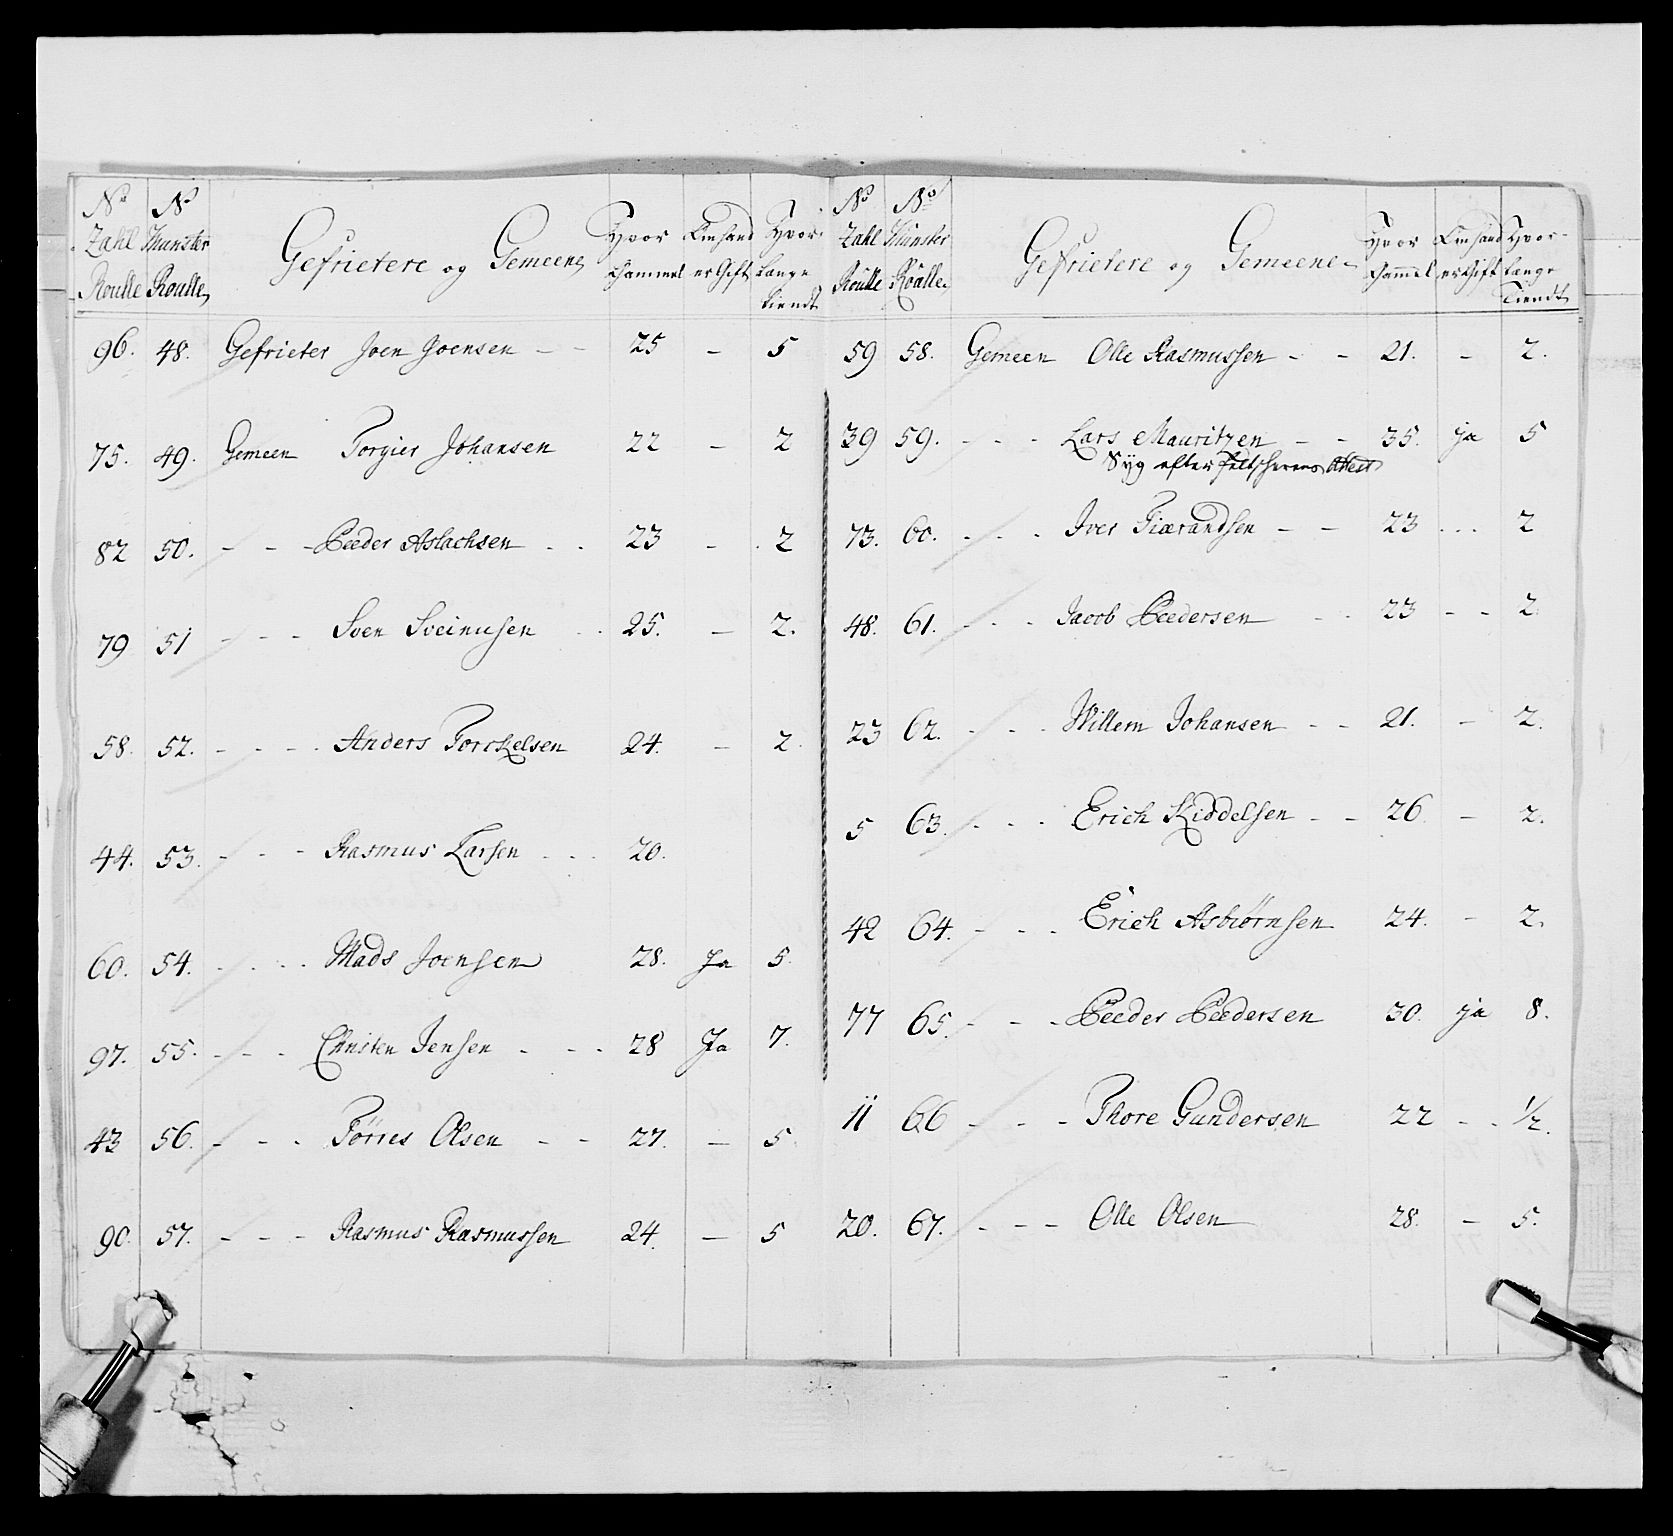 No Zahl Roulle No Munster Roulle Gefrietere og Gemeene Hvor Gammel Om hand er Gift Hvor Længe tiendt
96. 48. Gefrieter Joen Joensen - - 25 - 5
75. 49. Gemeen Torgier Johansen 22 - 2
82 50. - - - Peeder Aslachsen . . 23 - . 2
79 51 - - - Sven Sveinusen . . 25. - 2.
58. 52. - - - . Anders Torckelsen 24. - 2.
44. 53. - - - Rasmus Larsen . . . 20.
60. 54. . . . . Mads Joensen 28. Ja 5.
97. 55. - - - Christen Jensen . . . 28 Ja 7.
43 56. - - - Törres Olsen - - 27. - 5.
90. 57. - - - Rasmus Rasmussen 24. - 5
No Zahl Roulle No Munster Roulle Gefrietere og Gemeene Hvor Gammel Om hand er Gift Hvor Længe Tiendt
59 58. Gemeen Olle Rasmussen - - 21. - 2.
39 59. - - - Lars Mauritzen - - 35. ja 5
Syg efter Feltscherens Attest
73. 60. - - - Iver Tiærandsen - - 23 . . . 2
48. 61. - - - Jacob Peedersen . . 23 - - 2.
23 62. - - - Willem Johansen - - 21. - 2.
5 63. - - - Erich Kiddelsen - - 26. - 2.
42 64. - - - Erich Asbiörnsen 24. - 2.
77 65. - - - Peeder Peedersen 30. ja 8.
11 66 - - - Thore Gundersen 22 - - 1/2.
20. 67. - - - Olle Olsen 28. - 5.